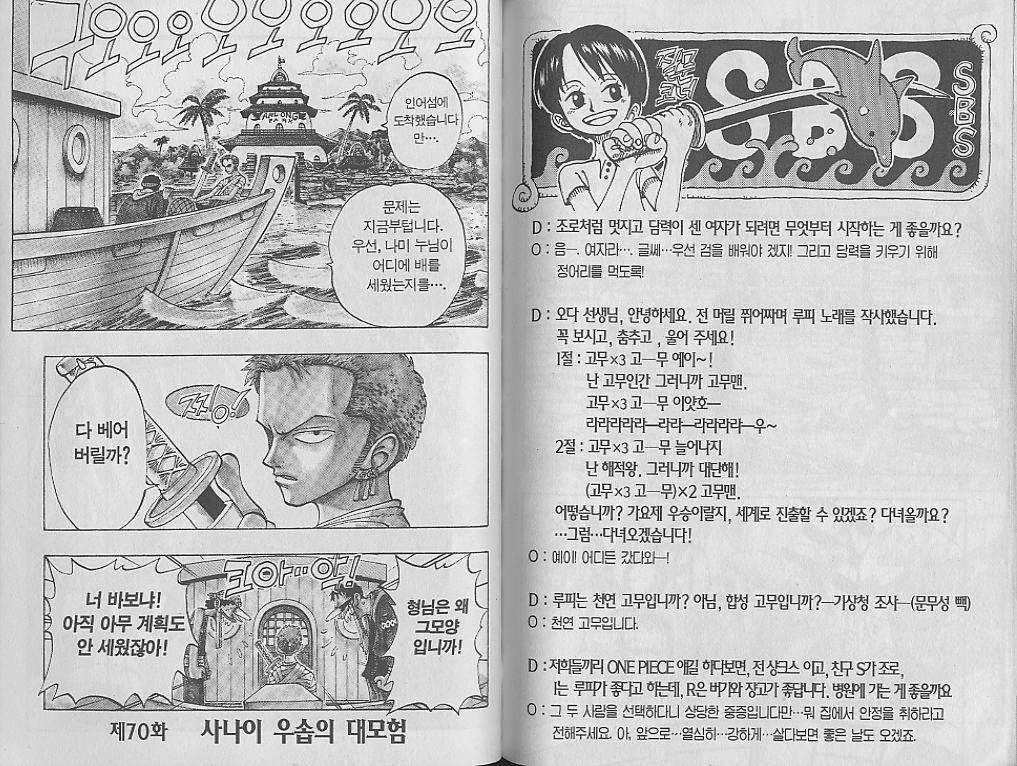 쿠오오오오오오오오오
인어섬에
도착했습니다
만….
문제는
지금부텁니다.
우선, 나미 누님이
어디에 배를
세웠는지를….
다 베어
버릴까?
너 바보냐!
아직 아무 계획도
안 세웠잖아!
형님은 왜
그모양
입니까!
제70화 사나이 우솝의 대모험
질문코너
SBS
SBS
D : 조로처럼 멋지고 담력이 센 여자가 되려면 무엇부터 시작하는 게 좋을까요?
O : 음―. 여자라…. 글쎄…우선 검을 배워야 겠지! 그리고 담력을 키우기 위해
정어리를 먹도록!
D : 오다 선생님, 안녕하세요. 전 머릴 쥐어짜며 루피 노래를 작사했습니다.
꼭 보시고, 춤추고 , 울어 주세요!
1절 : 고무×3 고―무 예이~!
난 고무인간 그러니까 고무맨.
고무×3 고―무 이얏호―
라라라라라―라라―라라라라―우~
2절 : 고무×3 고―무 늘어나지
난 해적왕. 그러니까 대단해!
(고무×3 고―무)×2 고무맨.
어떻습니까? 가요제 우승이랄지, 세계로 진출할 수 있겠죠? 다녀올까요?
…그럼…다녀오겠습니다!
O : 예이! 어디든 갔다와―!
D : 루피는 천연 고무입니까? 아님, 합성 고무입니까?―기상청 조사―(문무성 빽)
O : 천연 고무입니다.
D : 저희들끼리 ONE PIECE 얘길 하다보면, 전 샹크스 이고, 친구 S가 조로,
I는 루피가 좋다고 하는데, R은 버기와 쟝고가 좋답니다. 병원에 가는 게 좋을까요
O : 그 두 사람을 선택하다니 상당한 중증입니다만…뭐 집에서 안정을 취하라고
전해주세요. 아, 앞으로…열심히…강하게…살다보면 좋은 날도 오겠죠.